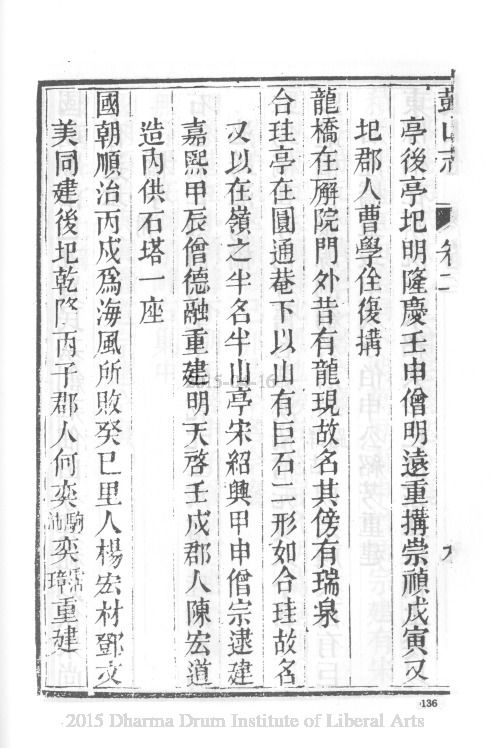 鼓山志 卷二 九
亭後亭圯明隆慶壬申僧明遠重搆崇禎戊寅又
圯郡人曹學佺復搆
龍橋在廨院門外昔有龍現故名其傍有瑞泉
合珪亭在圓通菴下以山有巨石二形如合珪故名
又以在嶺之半名半山亭宋紹興甲申僧宗逮建
嘉熙甲辰僧德融重建明天啓壬戌郡人陳宏道
造內供石塔一座
國朝順治丙戌爲海風所敗癸巳里人楊宏材鄧文
美同建後圯乾隆丙子郡人何奕奕重建
136
2015-09-16
2015 Dharma Drum Institute of Liberal Arts